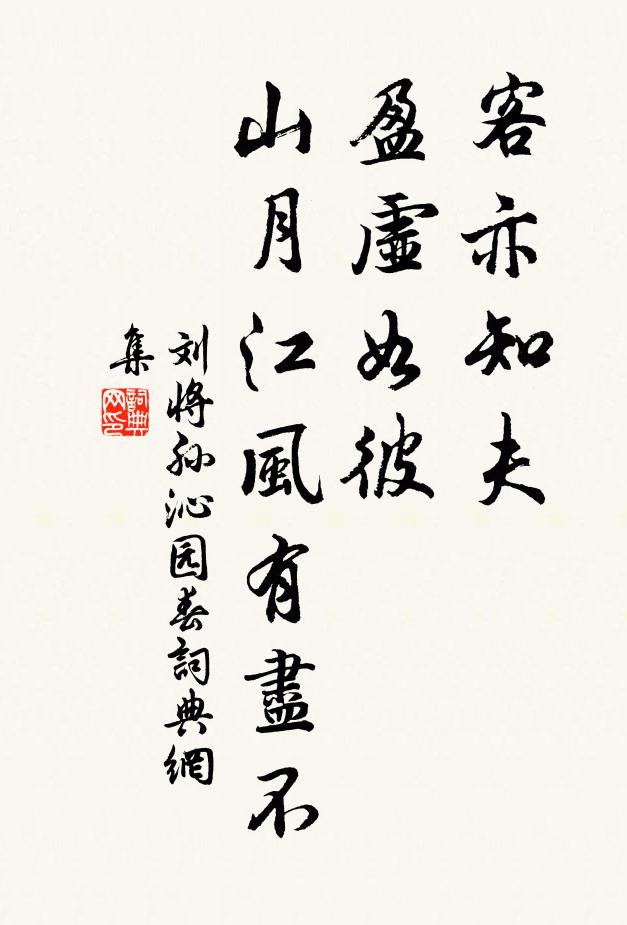 客亦知夫
盈虚如彼
山月江風有盡不
刘将孙沁园春詞典網
集
詞典
网印